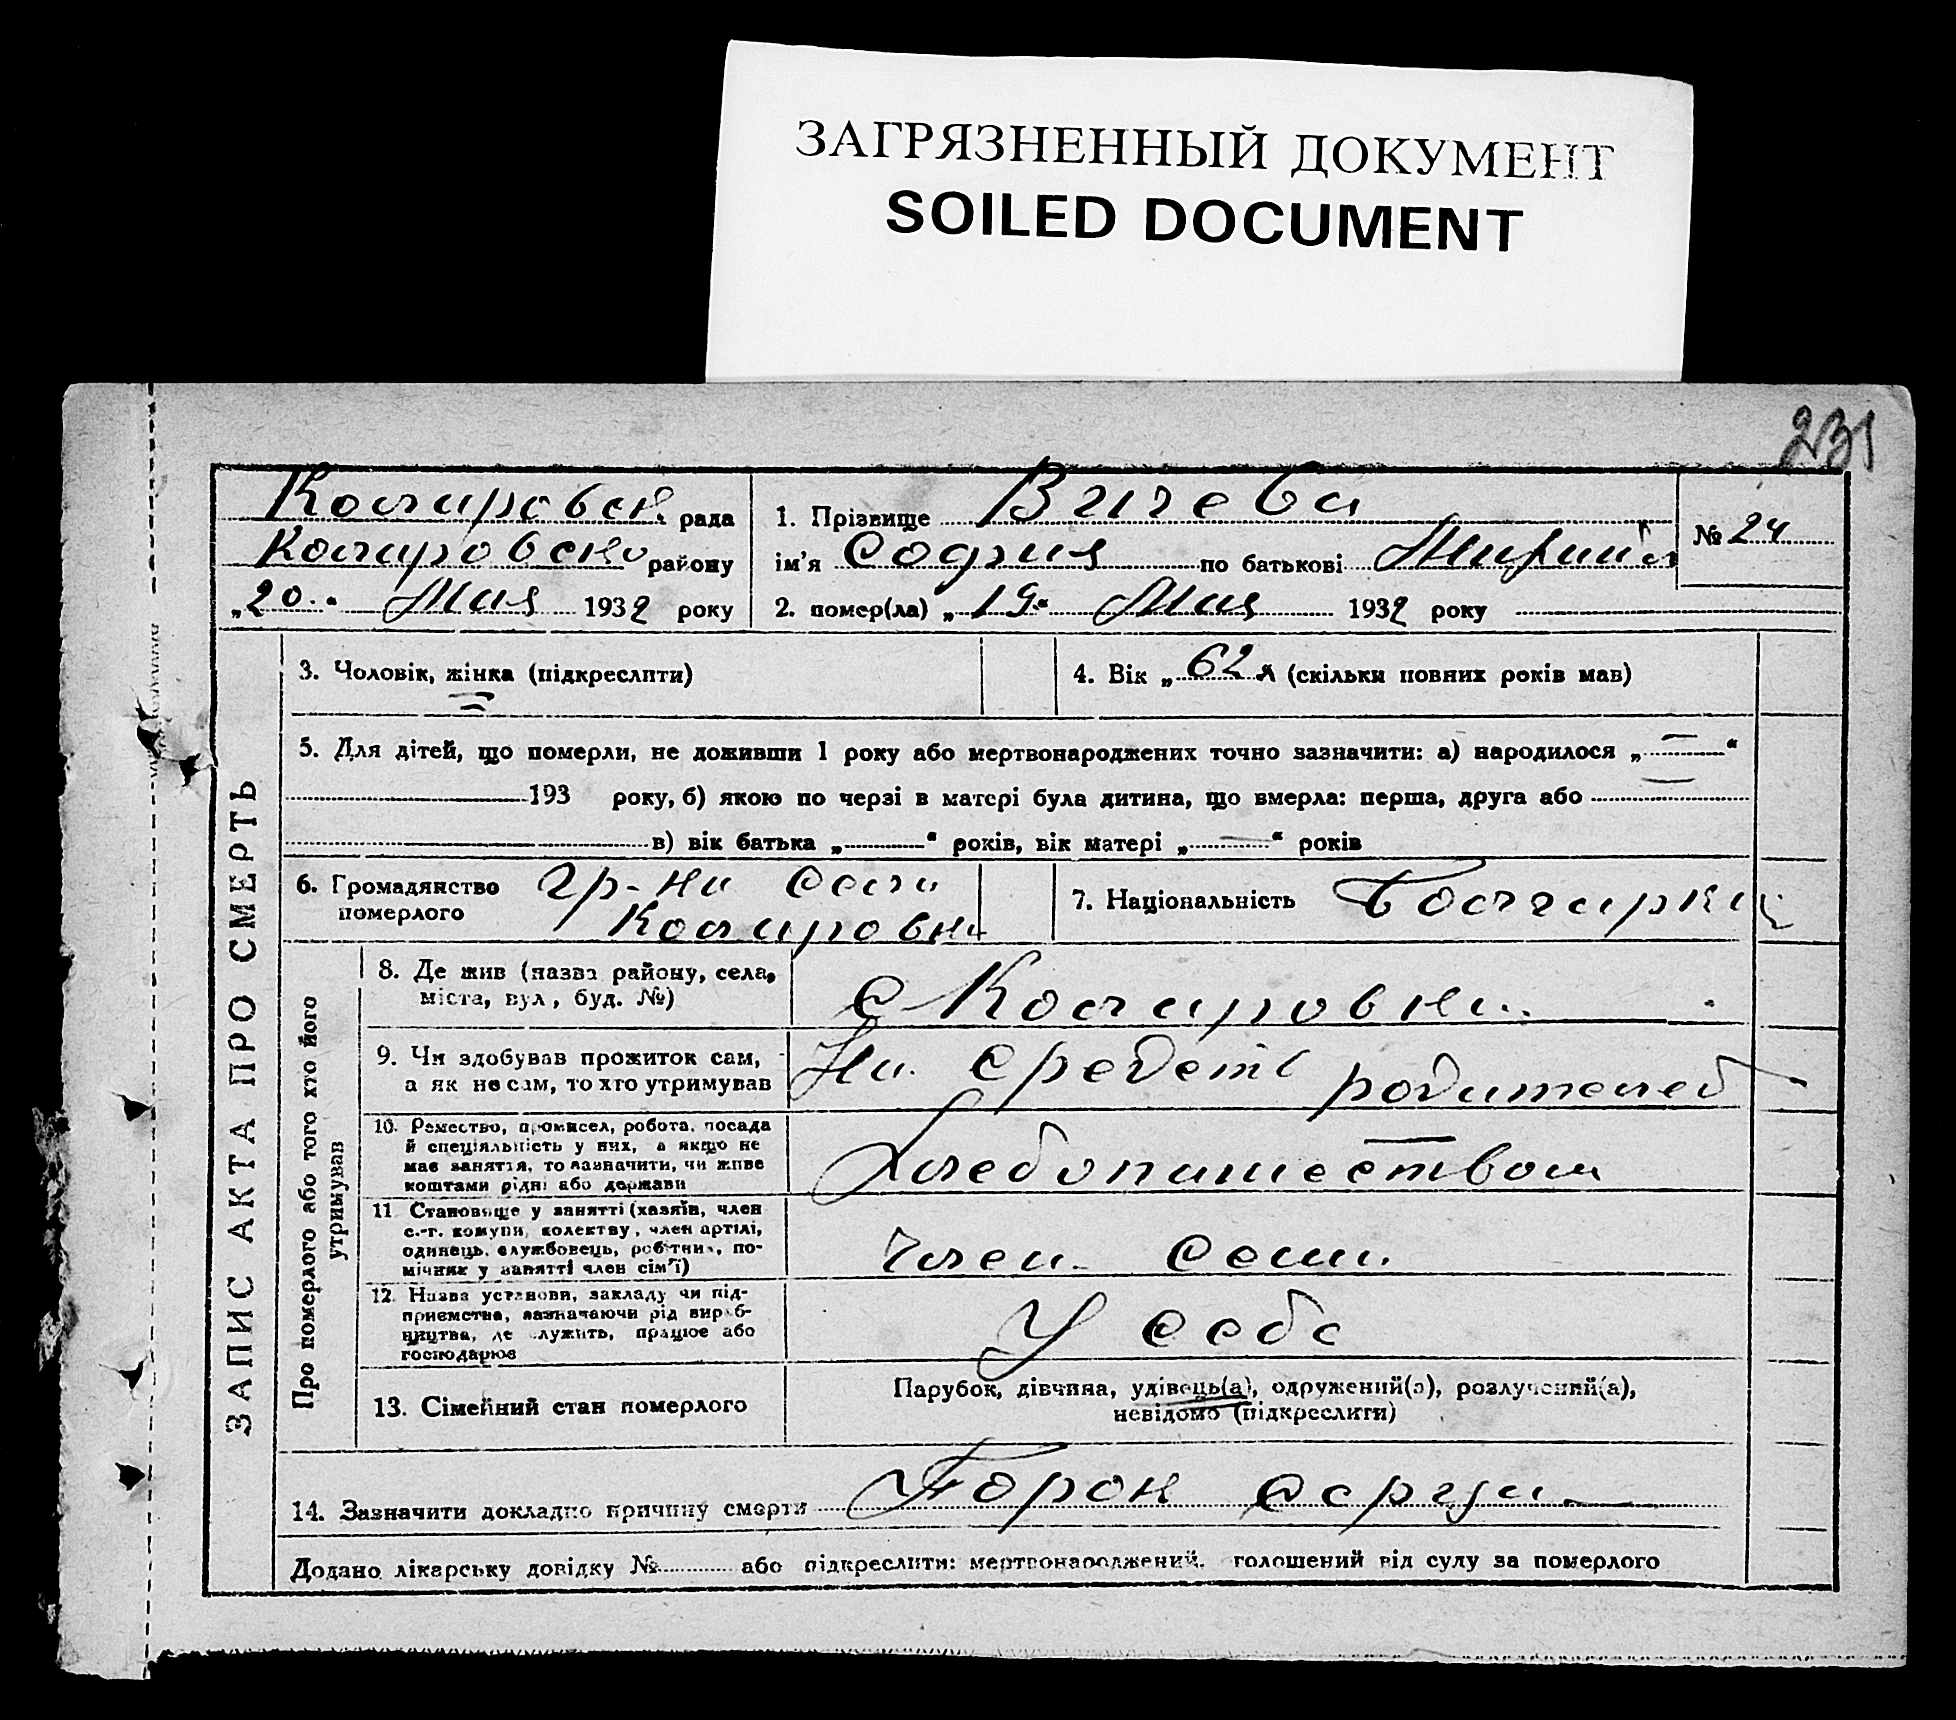 ЗАГРЯЗНЕННЫЙ ДОКУМЕНТ
SOILED DOCUMENT
231
Коларовск. рада
Коларовско району
„20.“ Мая 1932 року
1. Прізвище Вичева
ім'я София по батькові
2. помер(ла) „19.“ Мая 1932 року
№ 24
ЗАПИС АКТА ПРО СМЕРТЬ
3. Чоловік, жінка (підкреслити)
4. Вік „62 л (скільки повних років мав)
5. Для дітей, що померли, не доживши 1 року або мертвонароджених точно зазначити: а) народилося „—“
193 року, б) якою по черзі в матері була дитина, що вмерла: перша, друга або —
в) вік батька „ “ років, вік матері „—“ років
6. Громадянство померлого
гр-ка села
Коларовки
7. Національність Болгарка
Про померлого або того хто його утримував
8. Де жив (назва району, села,
міста, вул., буд. №)
с Коларовка.
9. Чи здобував прожиток сам,
а як не сам, то хто утримував
На средств родителей
10. Ремество, промисел, робота, посада
й спеціяльність у них, а якщо не
має заняття, то зазначити, чи живе
коштами рідні або держави
Хлебопашеством
11. Становище у занятті (хазяїн, член
с.-г. комуни, колектву, член артілі,
одинець, службовець, робітник, по-
мічник у занятті член сім'ї)
член семи.
12. Назва установи, закладу чи під-
приємства, зазначаючи рід вироб-
ництва, де служить, працює або
господарює
У себе
13. Сімейний стан померлого
Парубок, дівчина, удівець(а), одружений(а), розлучений(а),
невідомо (підкреслити)
14. Зазначити докладно причину смерти Порок серца
Додано лікарську довідку № або підкреслити: мертвонароджений, голошений від суду за померлого